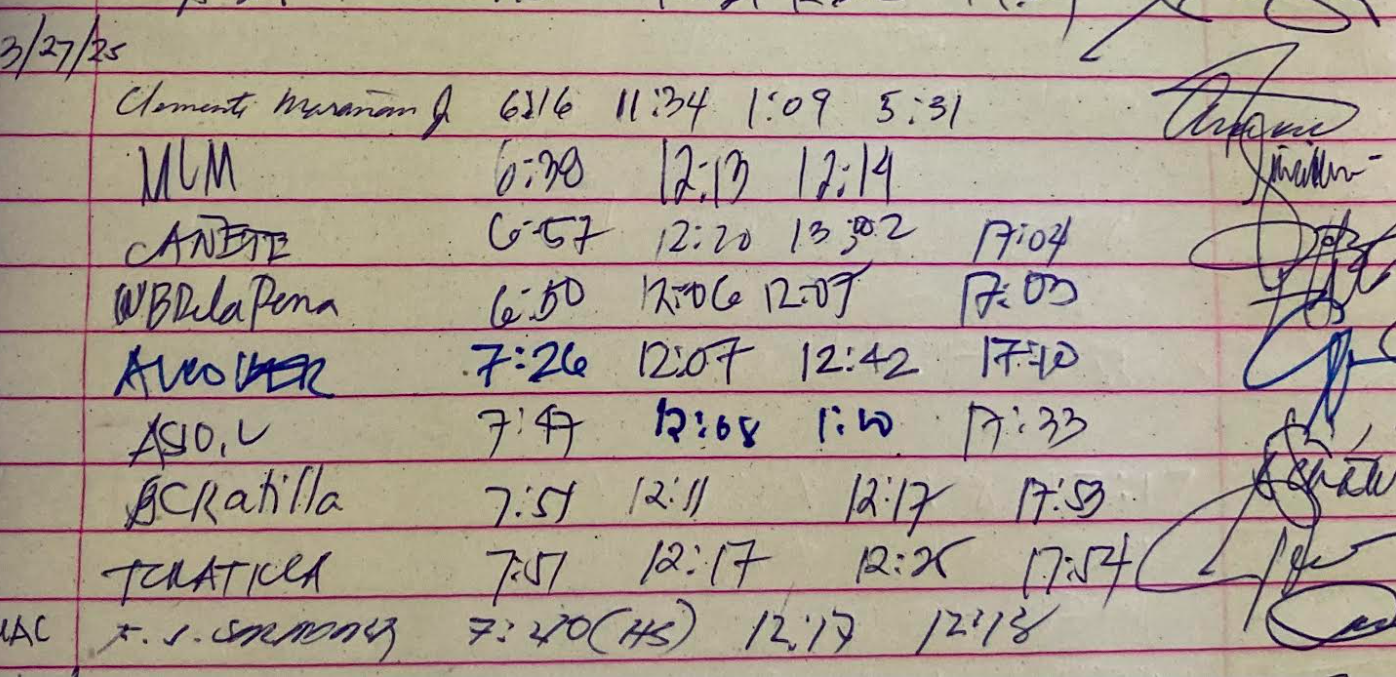 3/27/25
Clemente Marañan Jr 6:16 11:34 1:09 5:31
MLM 6:38 12:13 12:14
CANETE 6:57 12:20 17:04
WBDelaPena 6:50 12:06 12:07 17:03
7:26 12:07 12:42 17:10
ASIO, V 7:47 12:08 1:10 17:33
BCRatilla 7:51 12:11 12:17 17:53
TCRATILLA 7:51 12:17 12:25 17:54
7:40 (HS) 12:17 12:18